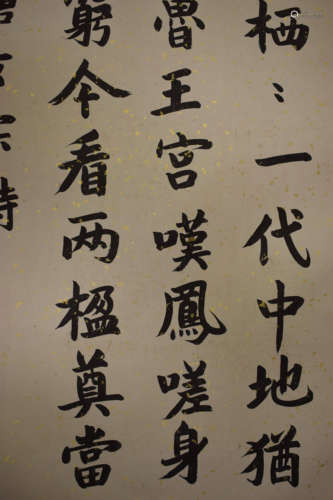 栖〻一代中地猶
魯王宮嘆鳳嗟身
窮今看两楹奠當